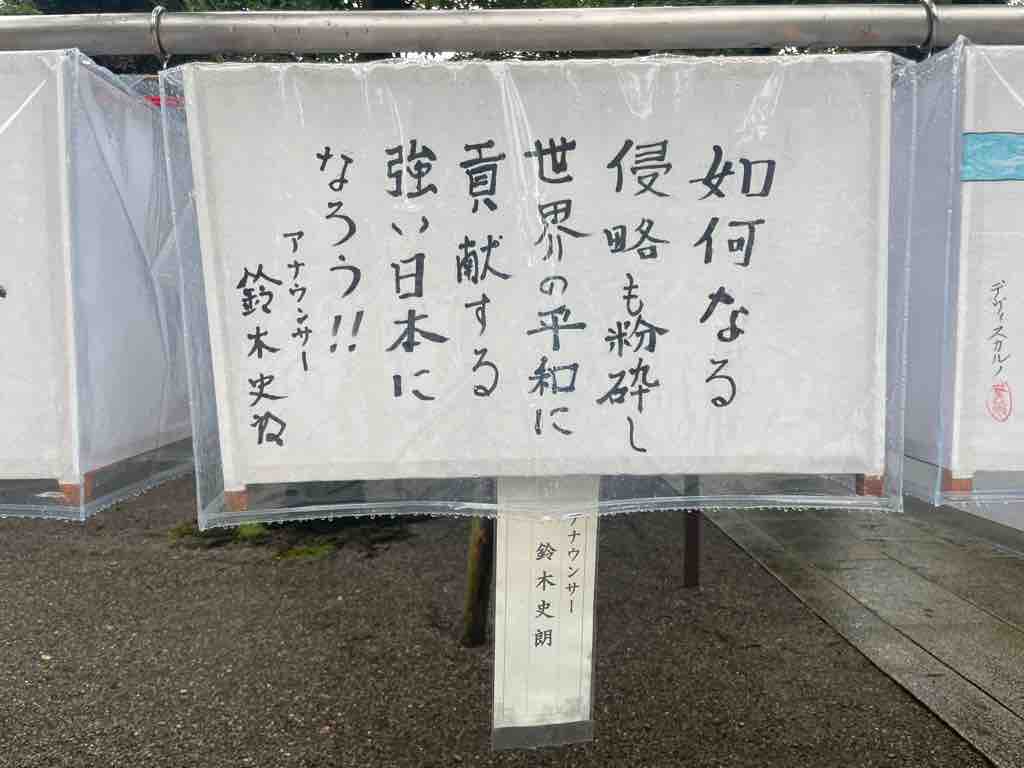 如何なる
侵略も粉砕し
世界の平和に
貢献する
強い日本に
なろう!!
アナウンサー
鈴木史朗
アナウンサー
鈴木史朗
デヴィスカルノ